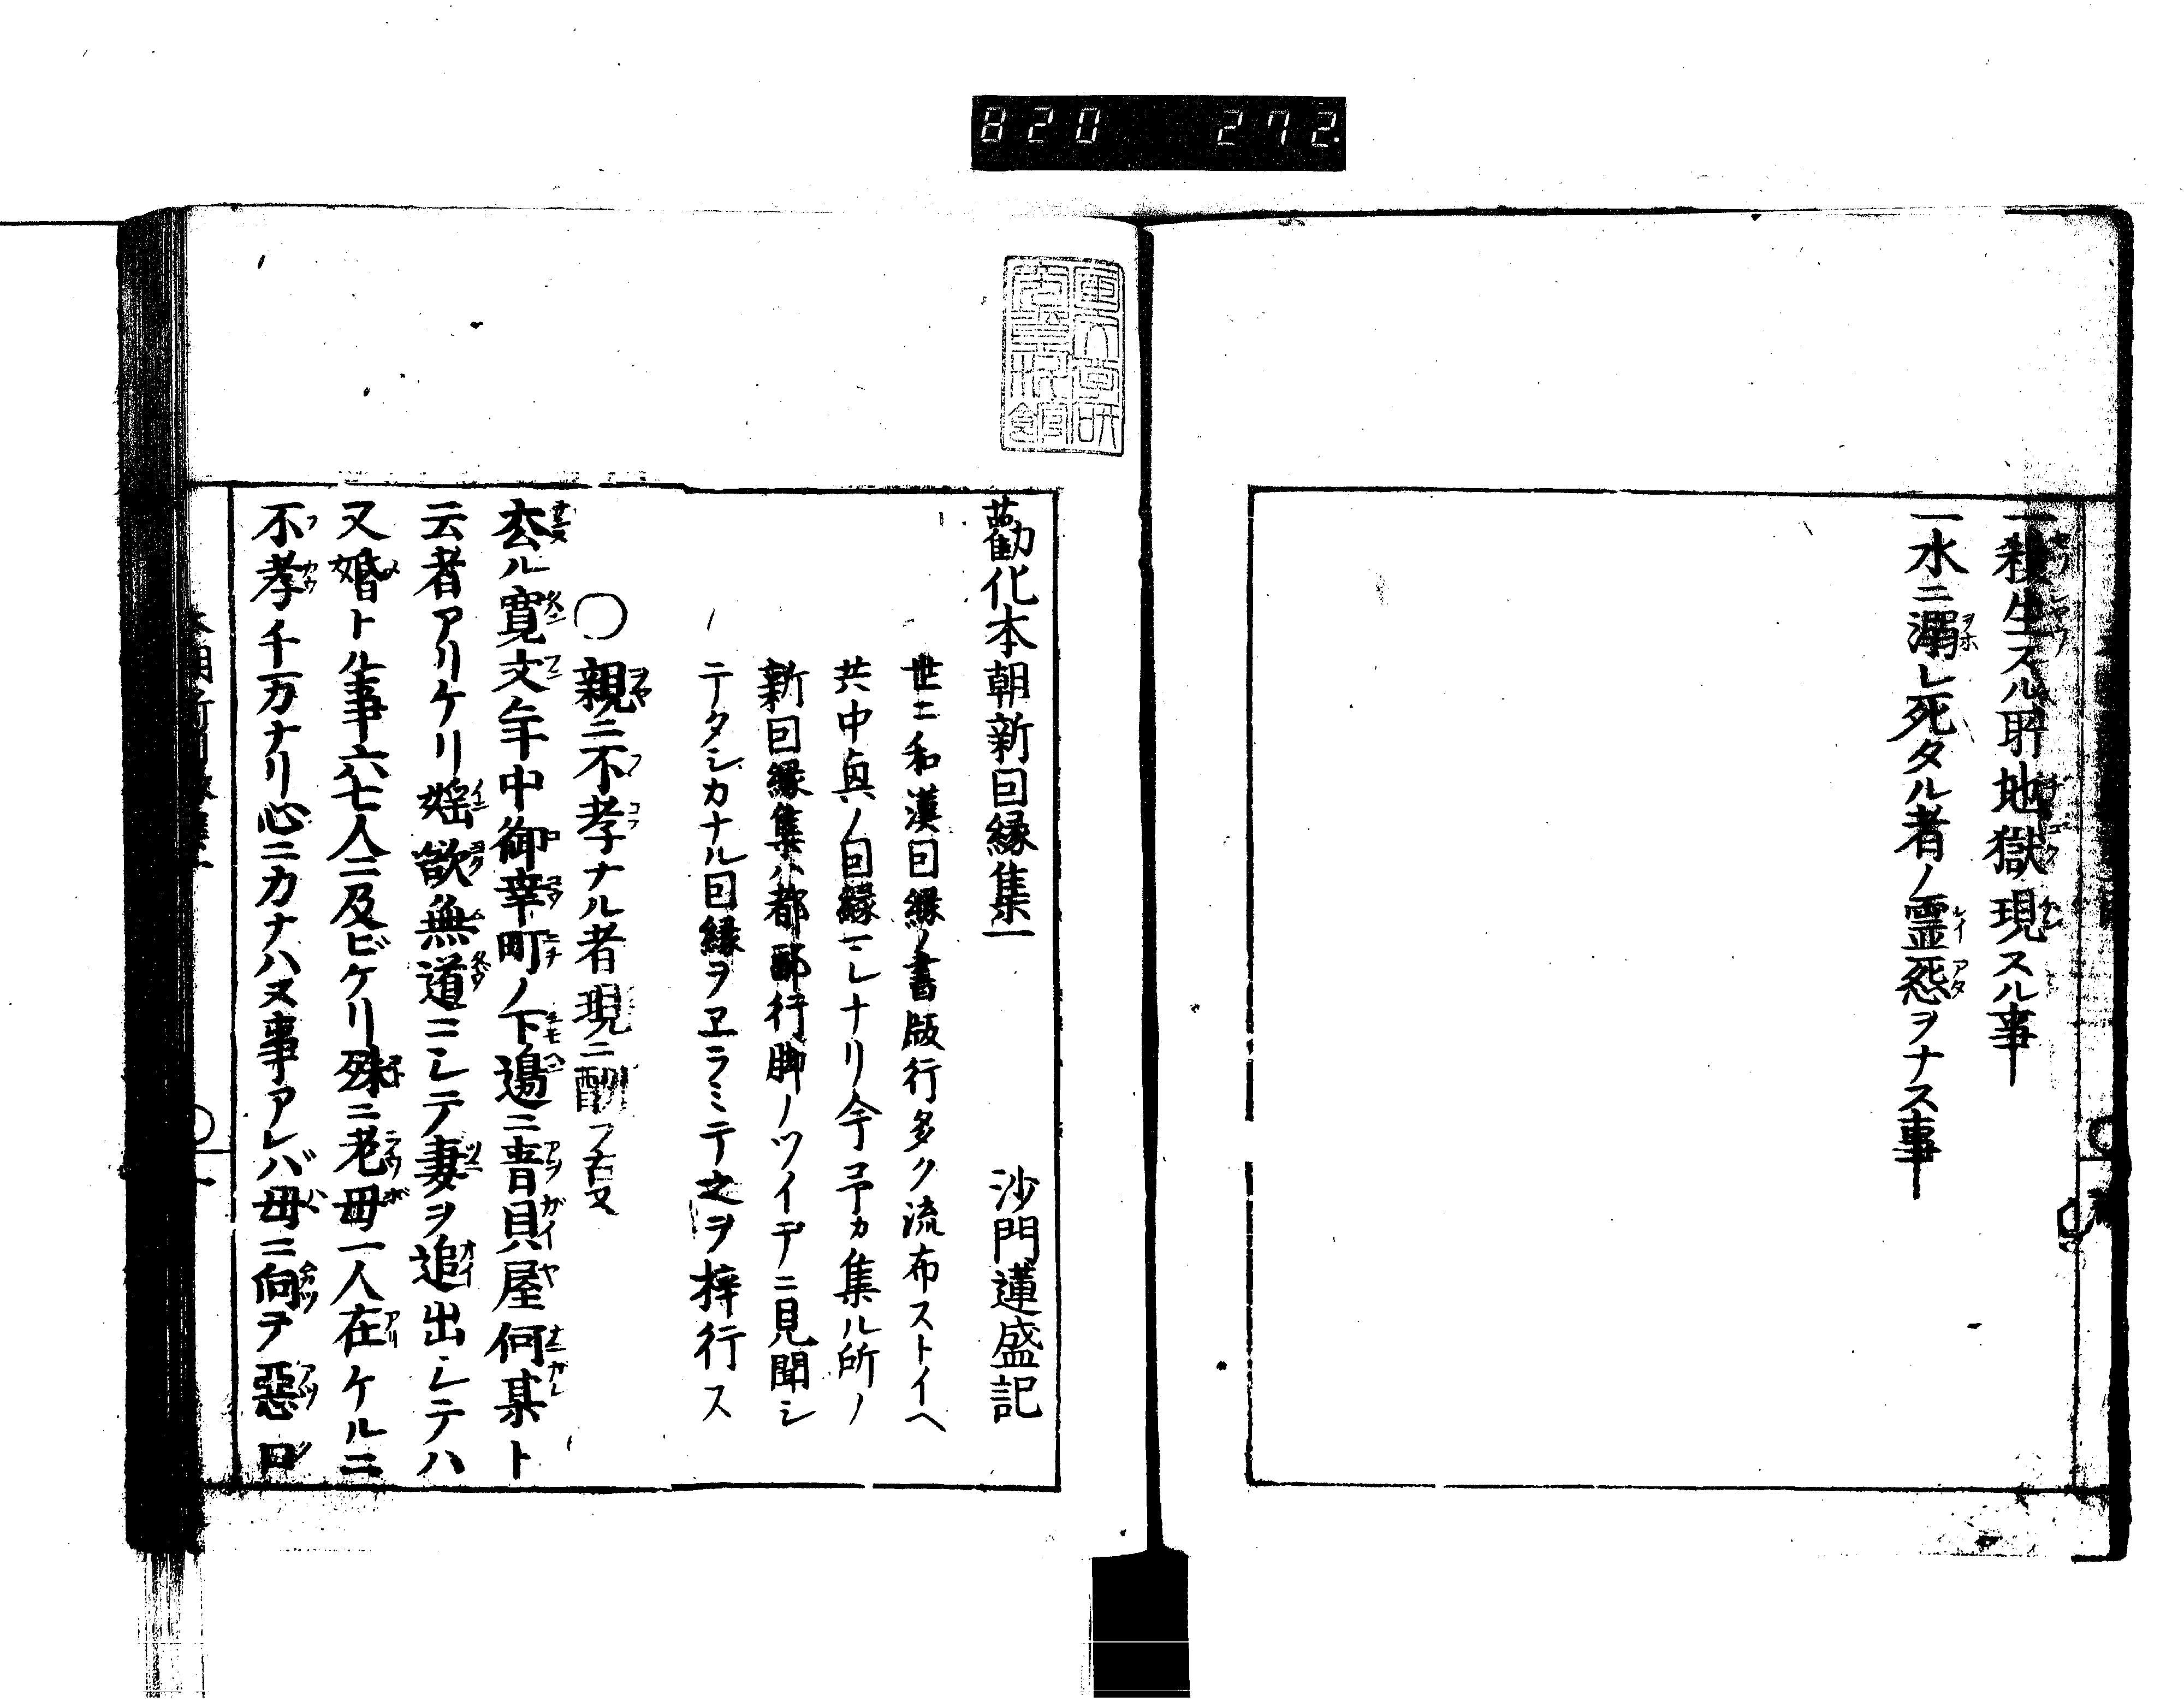 820 272
一殺生スル時地獄現スル事
一水ニ溺レ死タル者ノ霊怨ヲナス事
勸化本朝新因縁集一 沙門蓮盛記
世ニ和漢因縁ノ書版行多ク流布ストイヘ
共中眞ノ因縁マレナリ今予カ集ル所ノ
新因縁集ハ都鄙行脚ノツイデニ見聞シ
テタシカナル因縁ヲヱラミテ之ヲ梓行ス
○親ニ不孝ナル者現ニ酬フ
去ル寛文年中御幸町ノ下邊ニ青貝屋何某ト
云者アリケリ婬欲無道ニシテ妻ヲ追出シテハ
又婚トル事六七人ニ及ビケリ殊ニ老母一人在ケルニ
不孝千万ナリ心ニカナハヌ事アレバ母ニ向テ惡口